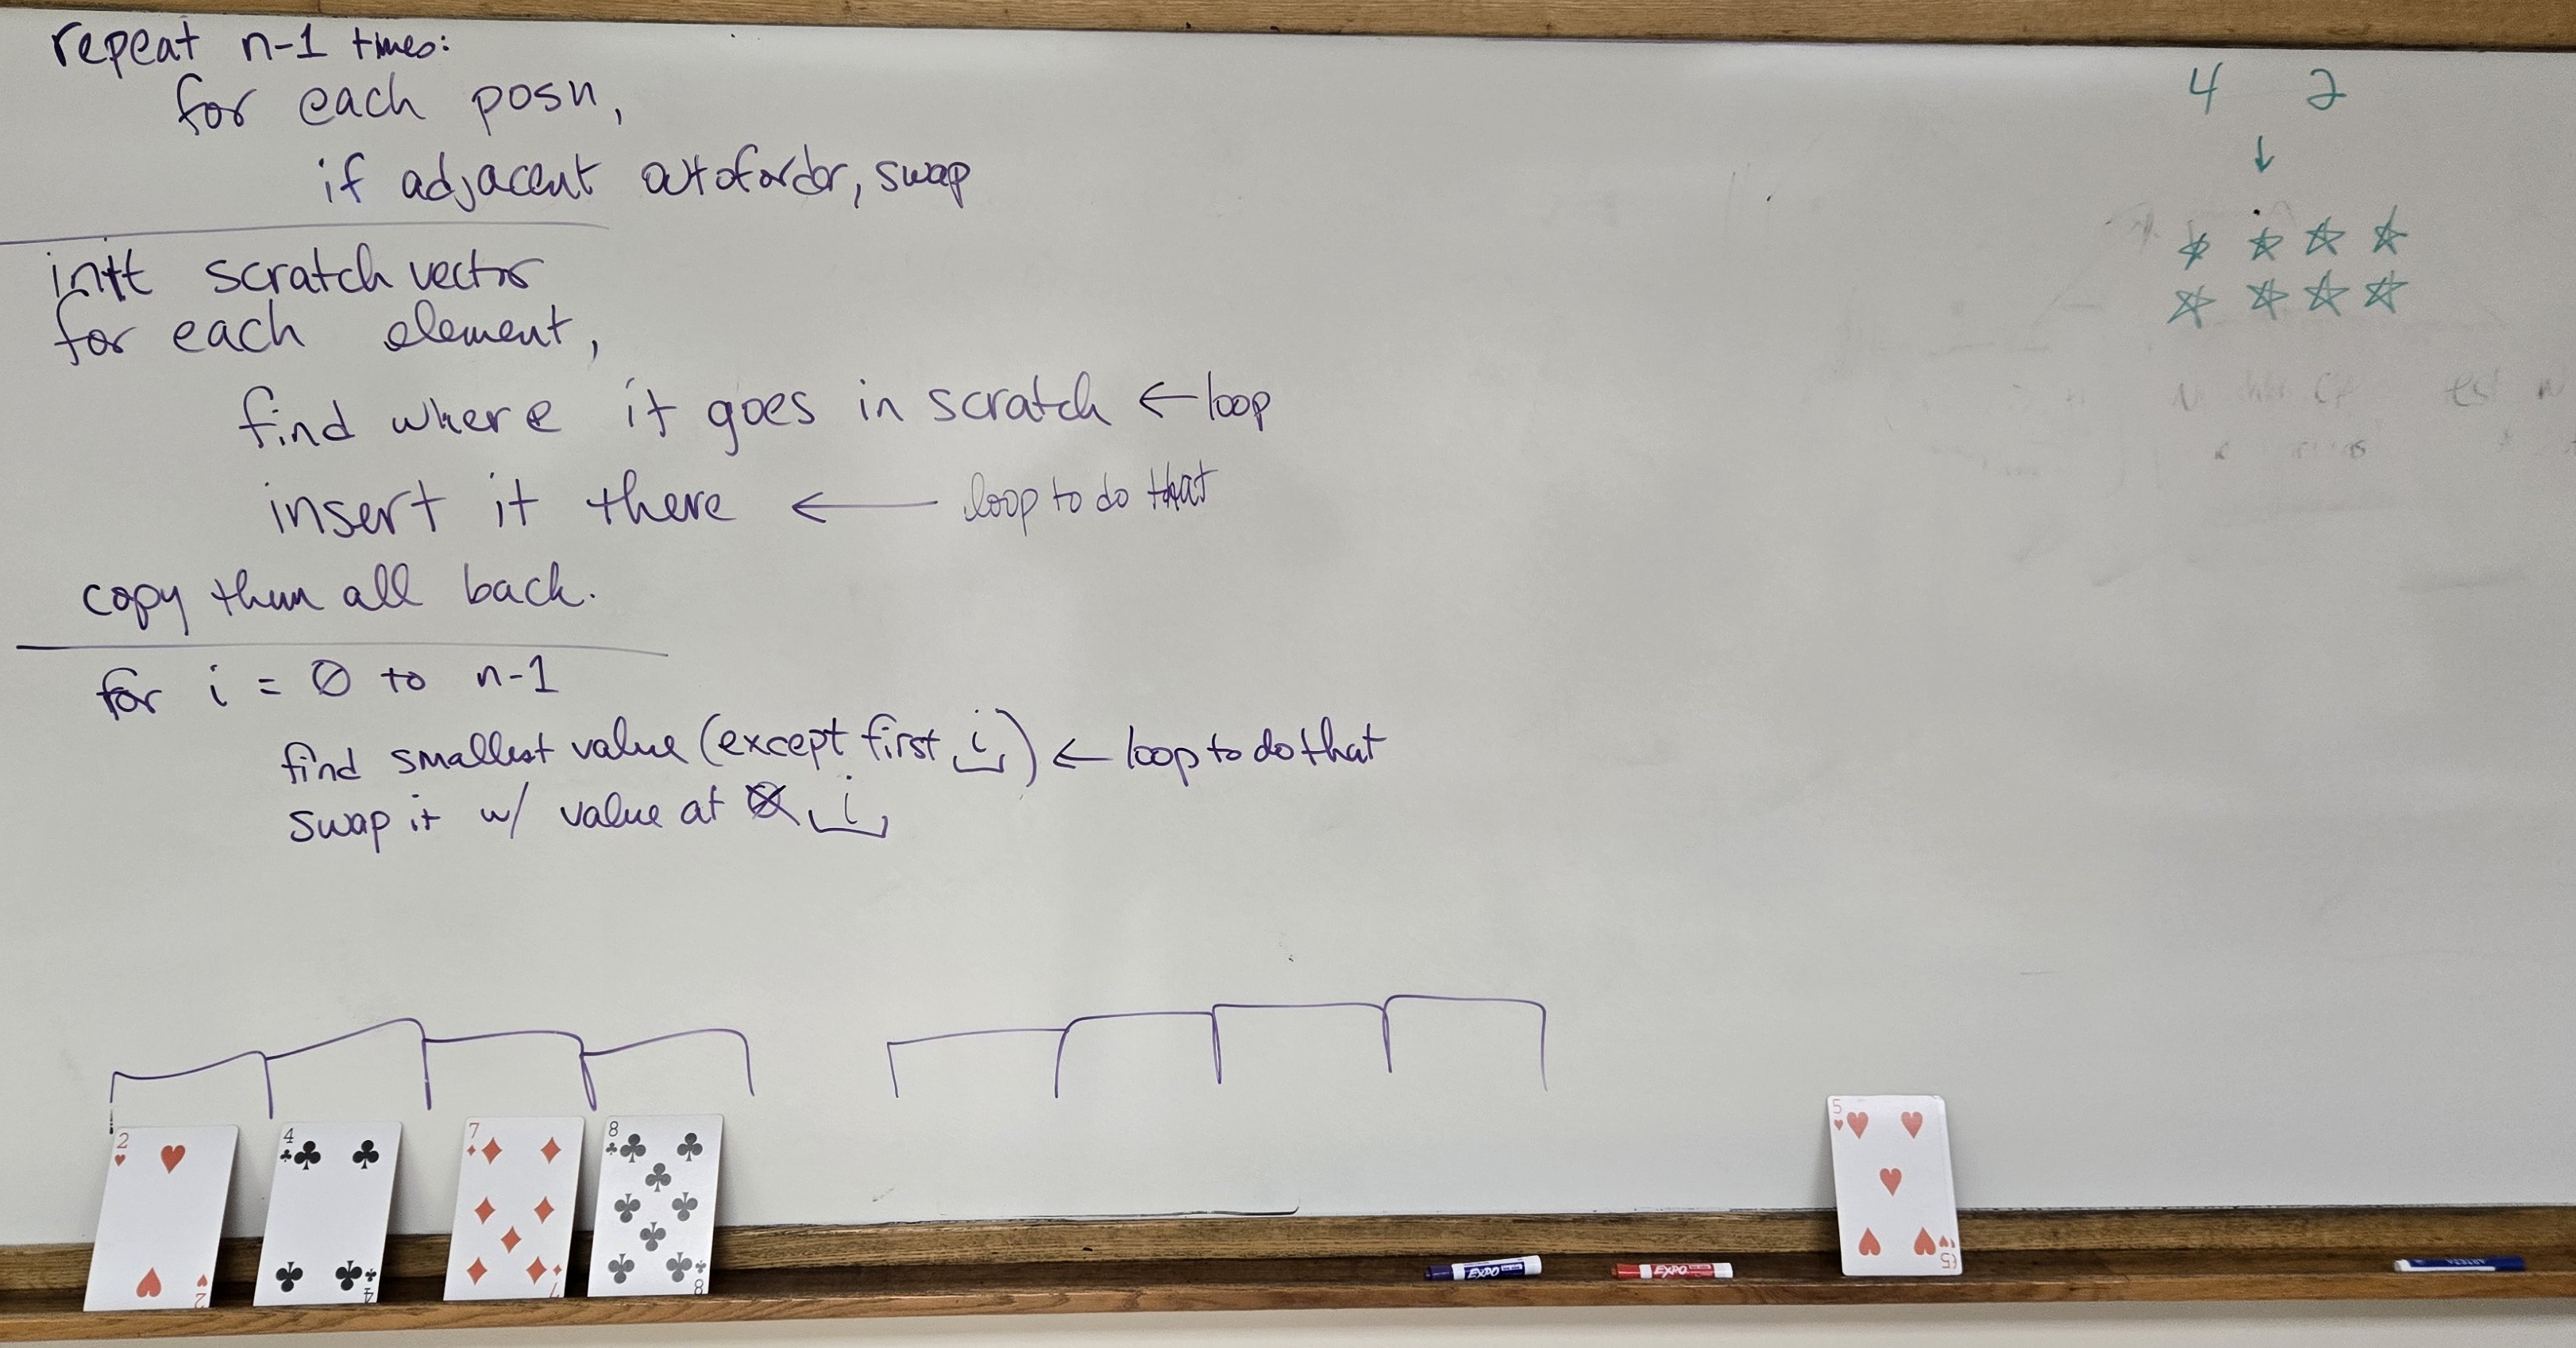 repeat n-1 times:
for each posn,
if adjacent outoforder, swap
init scratch vector
for each element,
find where it goes in scratch ← loop
insert it there ← loop to do that
copy them all back.
for i = 0 to n-1
find smallest value (except first i) ← loop to do that
swap it w/ value at 0 i
4 2
↓
2
2
4
4
7
7
8
8
5
5
EXPO
EXPO